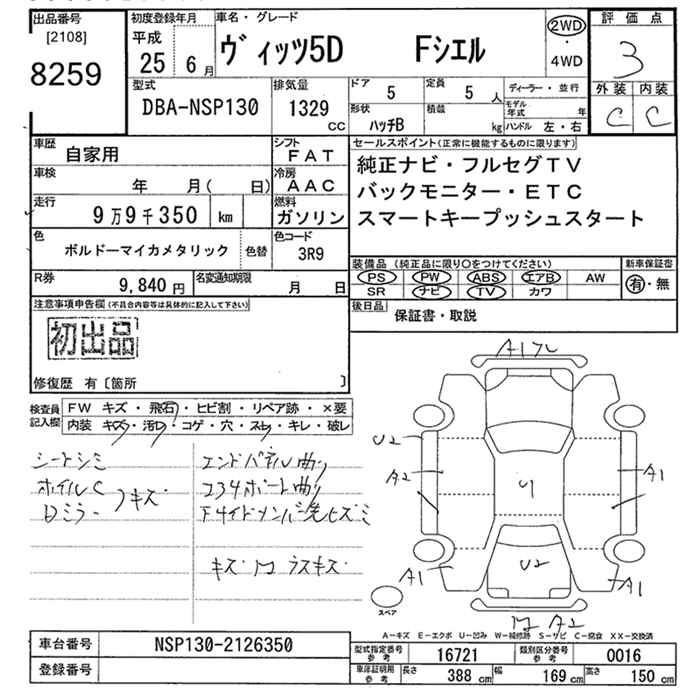 出品番号 初度登録年月 車名・グレード 2WD 評価点
[2108] 平成 ヴィッツ5D Fシエル ・ 3
8259 25 6月 4WD 外装 内装
型式 排気量 ドア 5 定員 5人 ディーラー・並行 C C
DBA-NSP130 1329 cc 形状 ハッチB 積載 kg モデル年式 年
ハンドル 左・右
車歴 自家用 シフト FAT セールスポイント(正常に機能するものに限ります)
車検 年 月( 日) 冷房 AAC 純正ナビ・フルセグTV
走行 9万9千350 km 燃料 ガソリン バックモニター・ETC
スマートキープッシュスタート
色 ボルドーマイカメタリック 色替 色コード 3R9
装備品(純正品に限り〇をつけてください) 新車保証書
R券 9,840円 名変通知期限 月 日 PS PW ABS エアB AW 有・無
SR ナビ TV カワ
注意事項申告欄(不具合内容等は具体的に記入して下さい) 後日品 保証書・取説
初出品
修復歴 有〔箇所 〕
検査員記入欄 FW キズ・飛石・ヒビ割・リペア跡・×要
内装 キズ・汚レ・コゲ・穴・スレ・キレ・破レ
シートシミ エンドパネル曲り
ホイルC
Dミラーフキズ
キズ
A1
U2
A2
A1
U1
U2
A1
A1
A2
スペア
A-キズ E-エクボ U-凹み W-補修跡 S-サビ C-腐食 XX-交換済
車台番号 NSP130-2126350 型式指定番号 参考 16721 類別区分番号 参考 0016
登録番号 車庫証明用 参考 長さ 388 cm 幅 169 cm 高さ 150 cm